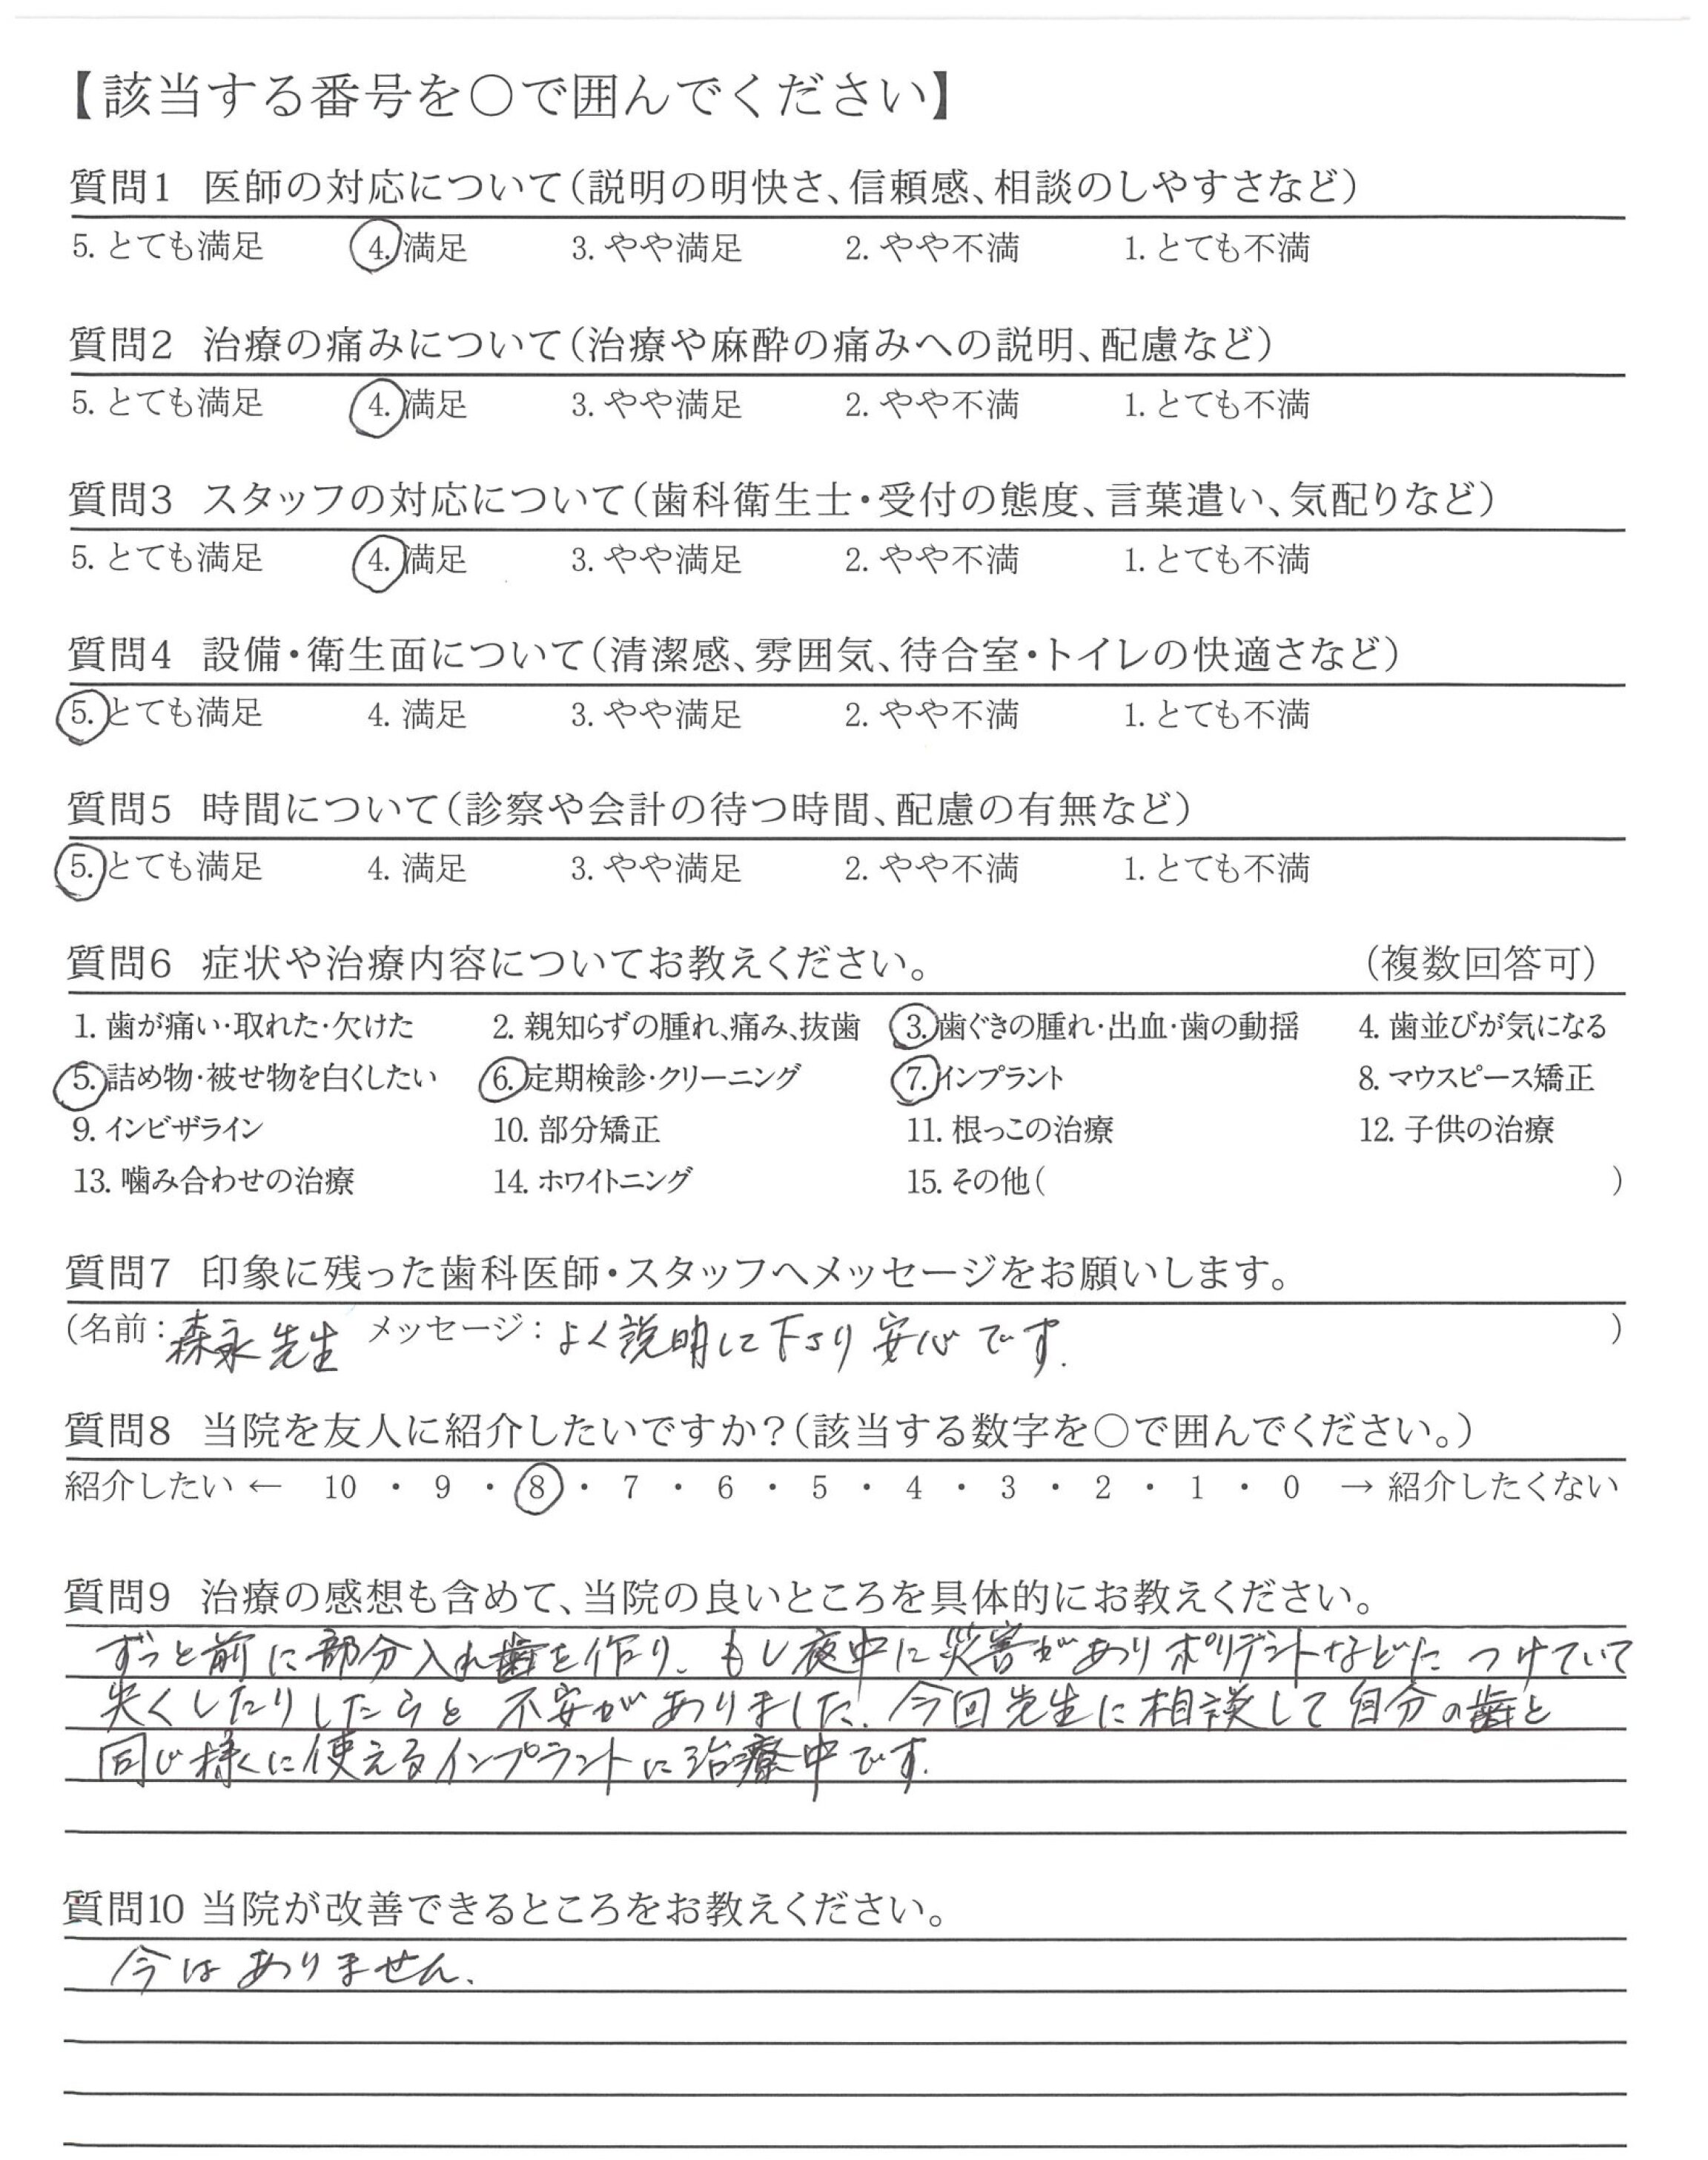 【該当する番号を○で囲んでください】
質問1 医師の対応について（説明の明快さ、信頼感、相談のしやすさなど）
5. とても満足 4. 満足 3. やや満足 2. やや不満 1. とても不満
質問2 治療の痛みについて（治療や麻酔の痛みへの説明、配慮など）
5. とても満足 4. 満足 3. やや満足 2. やや不満 1. とても不満
質問3 スタッフの対応について（歯科衛生士・受付の態度、言葉遣い、気配りなど）
5. とても満足 4. 満足 3. やや満足 2. やや不満 1. とても不満
質問4 設備・衛生面について（清潔感、雰囲気、待合室・トイレの快適さなど）
5. とても満足 4. 満足 3. やや満足 2. やや不満 1. とても不満
質問5 時間について（診察や会計の待つ時間、配慮の有無など）
5. とても満足 4. 満足 3. やや満足 2. やや不満 1. とても不満
質問6 症状や治療内容についてお教えください。 （複数回答可）
1. 歯が痛い・取れた・欠けた 2. 親知らずの腫れ、痛み、抜歯 3. 歯ぐきの腫れ・出血・歯の動揺 4. 歯並びが気になる
5. 詰め物・被せ物を白くしたい 6. 定期検診・クリーニング 7. インプラント 8. マウスピース矯正
9. インビザライン 10. 部分矯正 11. 根っこの治療 12. 子供の治療
13. 噛み合わせの治療 14. ホワイトニング 15. その他（ ）
質問7 印象に残った歯科医師・スタッフへメッセージをお願いします。
（名前：森永先生 メッセージ：よく説明して下さり安心です. ）
質問8 当院を友人に紹介したいですか？（該当する数字を○で囲んでください。）
紹介したい ← 10 ・ 9 ・ 8 ・ 7 ・ 6 ・ 5 ・ 4 ・ 3 ・ 2 ・ 1 ・ 0 → 紹介したくない
質問9 治療の感想も含めて、当院の良いところを具体的にお教えください。
ずっと前に部分入れ歯を作り、もし夜中に災害がありポリデントなどにつけていて
失くしたりしたらと不安がありました. 今回先生に相談して自分の歯と
同じ様に使えるインプラントに治療中です.
質問10 当院が改善できるところをお教えください。
今はありません.